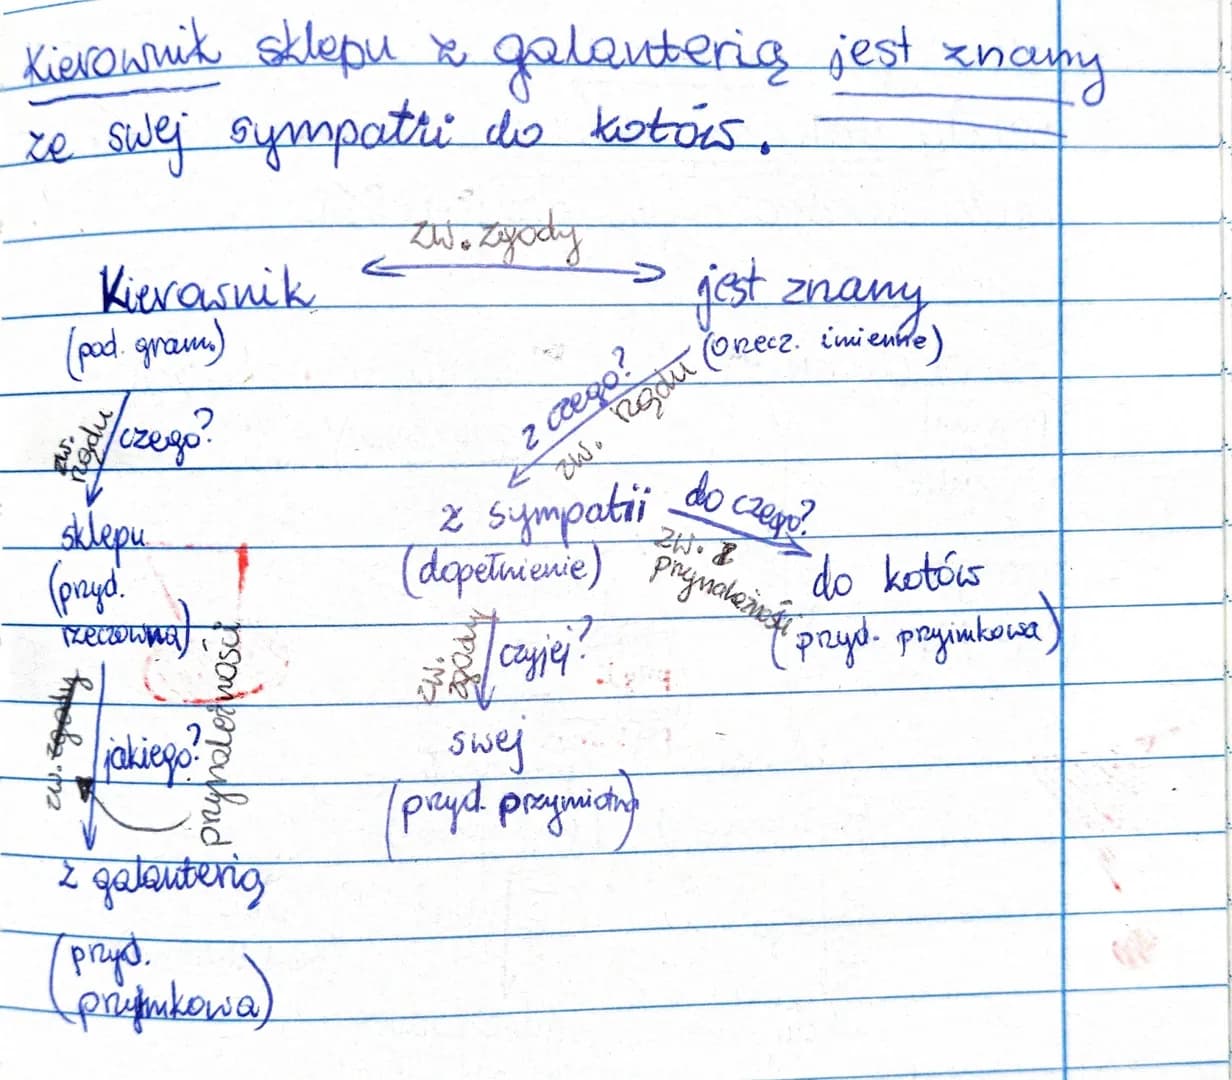 Kierownik sklepu z galanterią jest znany
ze swej sympatii do kotów.
zw. zgody
Kierownik
jest znany
(pod. gram.)
(orzecz. imienne)
zw. rządu
czego?
z czego?
zw. rządu
sklepu
(przyd.
rzeczowna)
z sympatii
(dopełnienie)
do czego?
zw.
przynależności
do kotów
(przyd. przyimkowa)
zw. zgody
jakiego?
przynależności
zw. zgody
czyjej?
swej
(przyd. przymiotna)
z galanterią
(przyd.
przyimkowa)